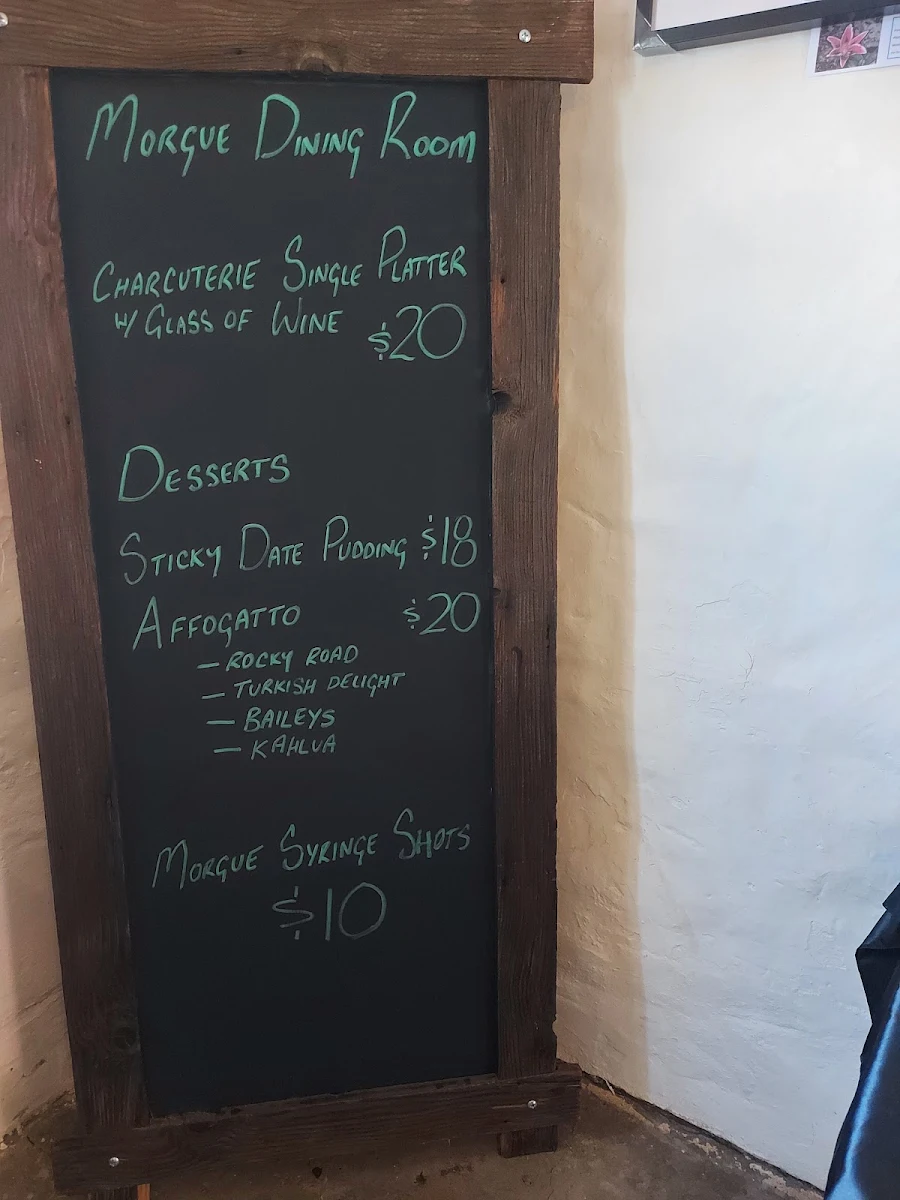 MORGUE DINING ROOM
CHARCUTERIE SINGLE PLATTER
W/ GLASS OF WINE $20
DESSERTS
STICKY DATE PUDDING $18
AFFOGATTO $20
— ROCKY ROAD
— TURKISH DELIGHT
— BAILEYS
— KAHLUA
MORGUE SYRINGE SHOTS
$10